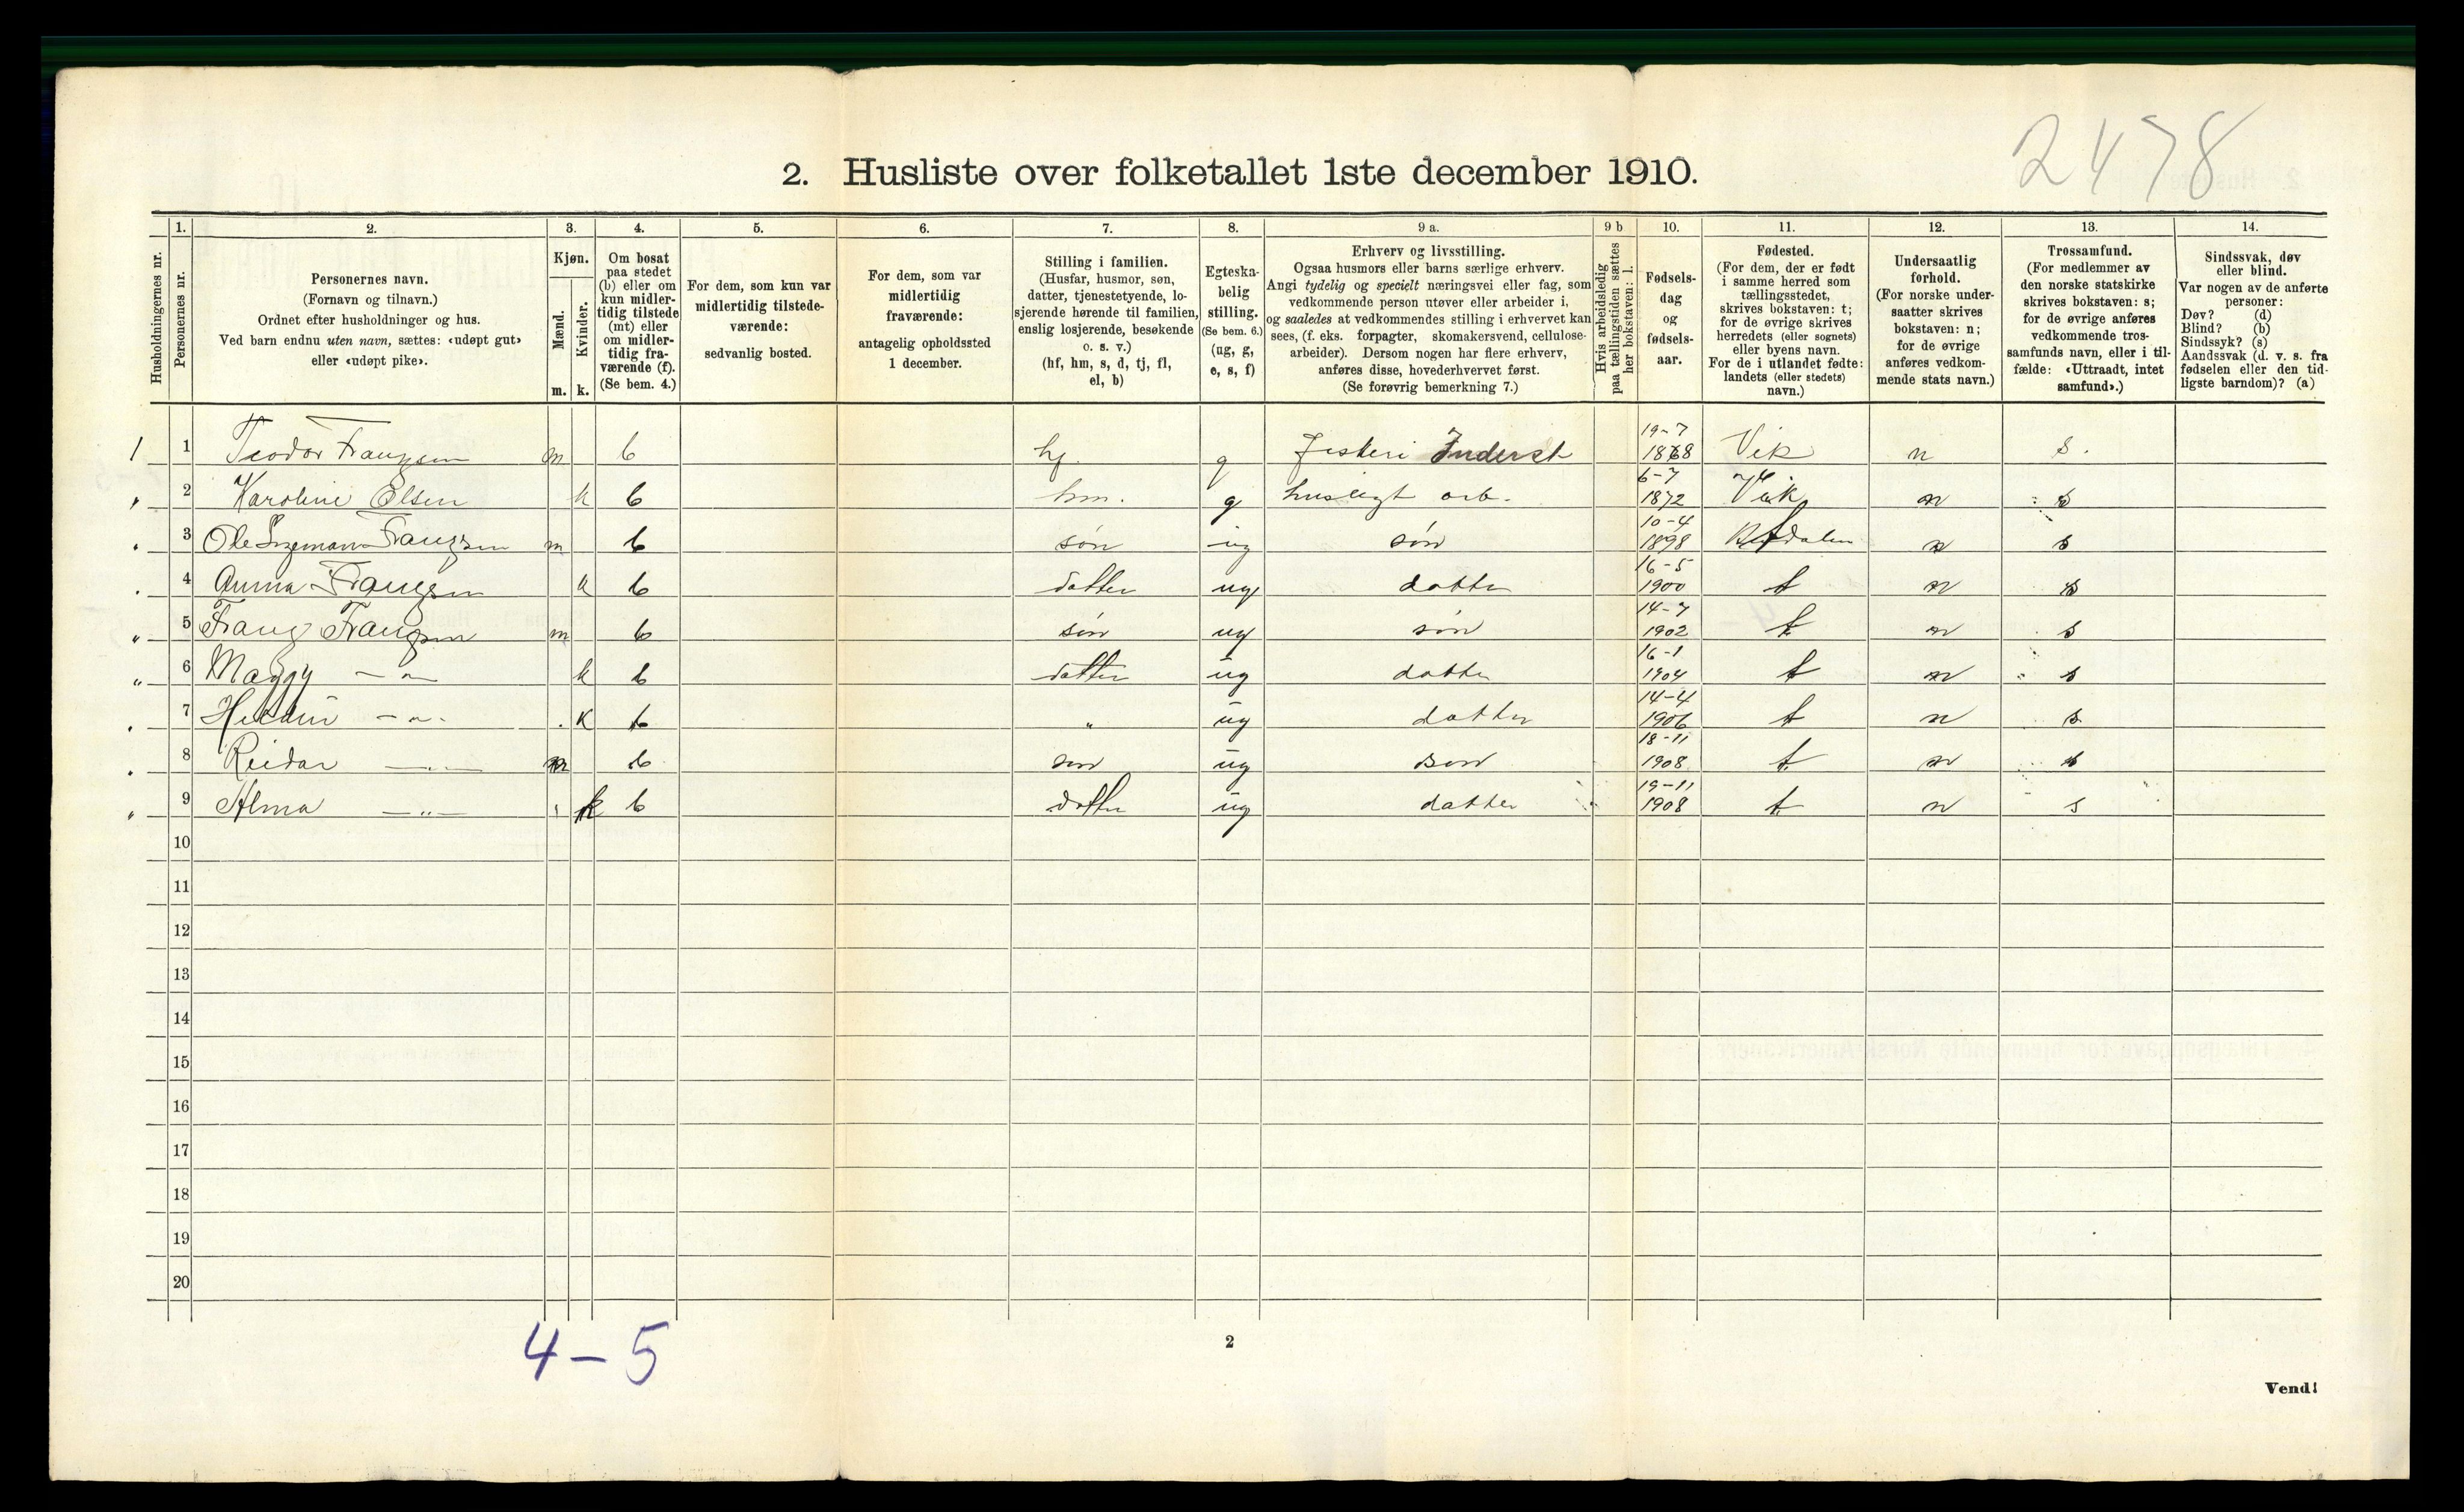 2478
2. Husliste over folketallet 1ste december 1910.
1. 2. 3. 4. 5. 6. 7. 8. 9 a. 9 b 10. 11. 12. 13. 14.
Husholdningernes nr.
Personernes nr.
Personernes navn.
(Fornavn og tilnavn.)
Ordnet efter husholdninger og hus.
Ved barn endnu uten navn, sættes: «udøpt gut»
eller «udøpt pike».
Kjøn.
Mænd.
Kvinder.
m. k.
Om bosat
paa stedet
(b) eller om
kun midler-
tidig tilstede
(mt) eller
om midler-
tidig fra-
værende (f).
(Se bem. 4.)
For dem, som kun var
midlertidig tilstede-
værende:
sedvanlig bosted.
For dem, som var
midlertidig
fraværende:
antagelig opholdssted
1 december.
Stilling i familien.
(Husfar, husmor, søn,
datter, tjenestetyende, lo-
sjerende hørende til familien,
enslig losjerende, besøkende
o. s. v.)
(hf, hm, s, d, tj, fl,
el, b)
Egteska-
belig
stilling.
(Se bem. 6.)
(ug, g,
e, s, f)
Erhverv og livsstilling.
Ogsaa husmors eller barns særlige erhverv.
Angi tydelig og specielt næringsvei eller fag, som
vedkommende person utøver eller arbeider i,
og saaledes at vedkommendes stilling i erhvervet kan
sees, (f. eks. forpagter, skomakersvend, cellulose-
arbeider). Dersom nogen har flere erhverv,
anføres disse, hovederhvervet først.
(Se forøvrig bemerkning 7.)
Hvis arbeidsledig
paa tællingstiden sættes
her bokstaven: l.
Fødsels-
dag
og
fødsels-
aar.
Fødested.
(For dem, der er født
i samme herred som
tællingsstedet,
skrives bokstaven: t;
for de øvrige skrives
herredets (eller sognets)
eller byens navn.
For de i utlandet fødte:
landets (eller stedets)
navn.)
Undersaatlig
forhold.
(For norske under-
saatter skrives
bokstaven: n;
for de øvrige
anføres vedkom-
mende stats navn.)
Trossamfund.
(For medlemmer av
den norske statskirke
skrives bokstaven: s;
for de øvrige anføres
vedkommende tros-
samfunds navn, eller i til-
fælde: «Uttraadt, intet
samfund».)
Sindssvak, døv
eller blind.
Var nogen av de anførte
personer:
Døv? (d)
Blind? (b)
Sindssyk? (s)
Aandssvak (d. v. s. fra
fødselen eller den tid-
ligste barndom)? (a)
1 1 Teodor Frangsen m b hf. g Fiskeri 19-7 1868 Vik n s.
„ 2 Karoline Olsen k b hm. g husligt arb. 6-7 1872 Vik n s
„ 3 Ole Frangsen m b søn ug søn 10-4 1898 n s
„ 4 Anna Frangsen k b datter ug datter 16-5 1900 t n s
„ 5 Frang Frangsen m b søn ug søn 14-7 1902 t n s
„ 6 Maggy — „ — k b datter ug datter 16-1 1904 t n s
„ 7 — „ — k b „ ug datter 14-4 1906 t n s
„ 8 Reidar — „ — m b søn ug søn 18-11 1908 t n s
„ 9 Alma — „ — k b datter ug datter 19-11 1908 t n s
10
11
12
13
14
15
16
17
18
19
20
4 - 5
2
Vend!